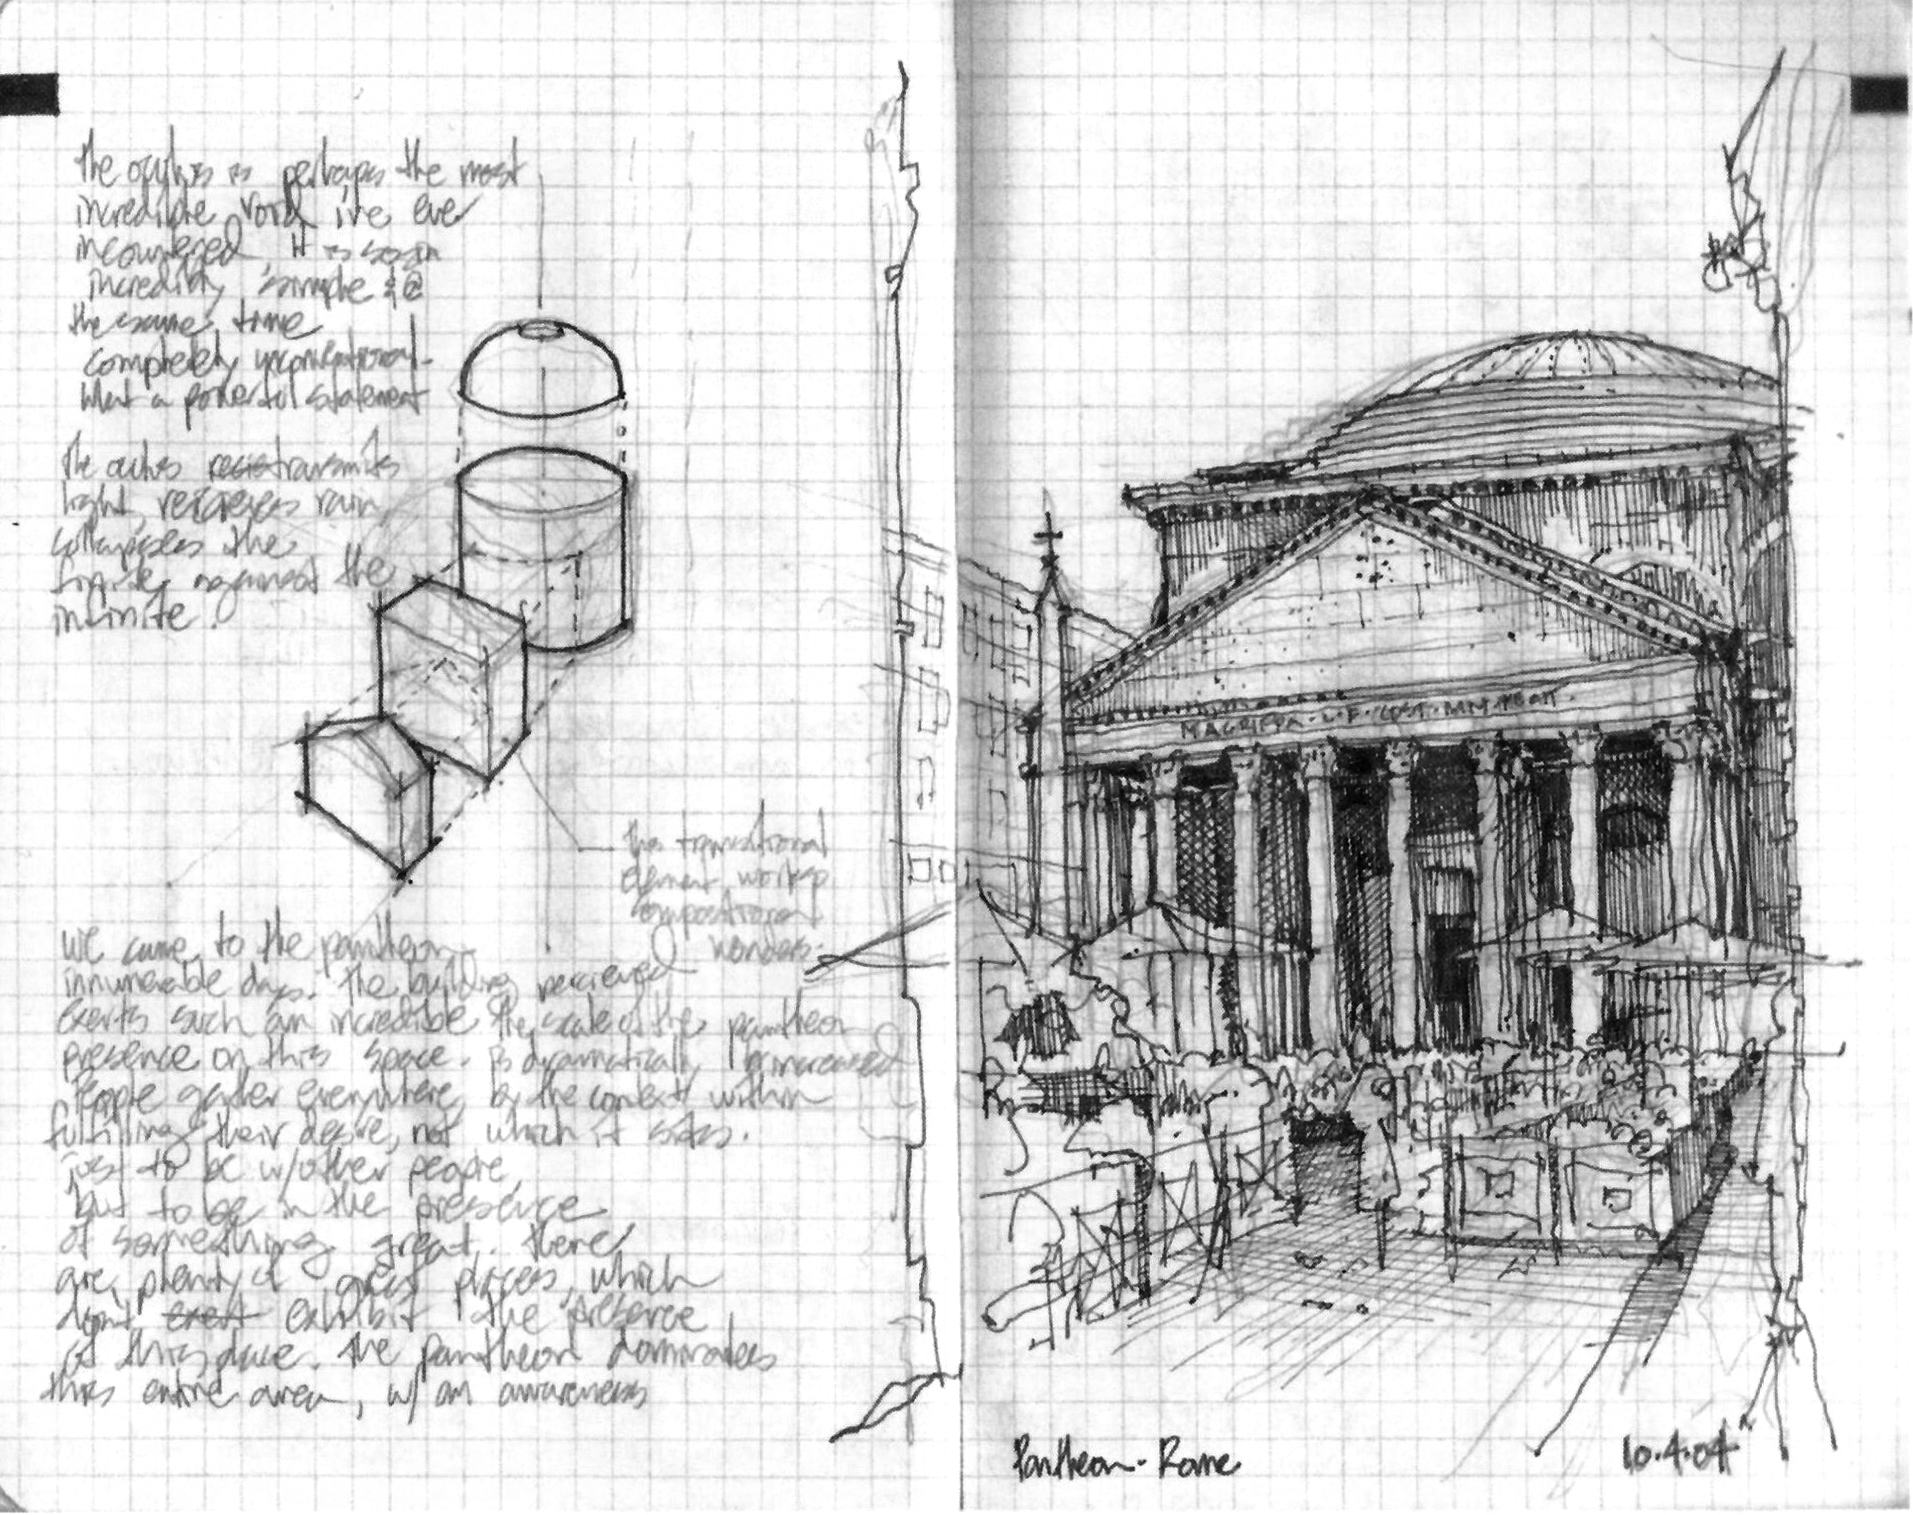 the oculus is perhaps the most
incredible void i've ever
incountered. It is so
incredibly simple &@
the same time
completely unconventional-
what a powerful statement
The oculus transmits
light, recieves rain
collapses the
finite against the
infinite.
this transitional
element works
compositional
wonders.
We came to the pantheon
innumerable days. the building
exerts such an incredible
presence on this space.
People gather everywhere
fulfilling their desire, not
just to be w/other people,
but to be in the presence
of something great. there
are plenty of great places, which
dont exert exhibit the presence
of this place. the pantheon dominates
this entire area, w/ an awareness
percieved
the scale of the pantheon
is dramatically increased
by the context within
which it sits.
M·AGRIPPA·L·F·COST
Pantheon - Rome
10.4.04